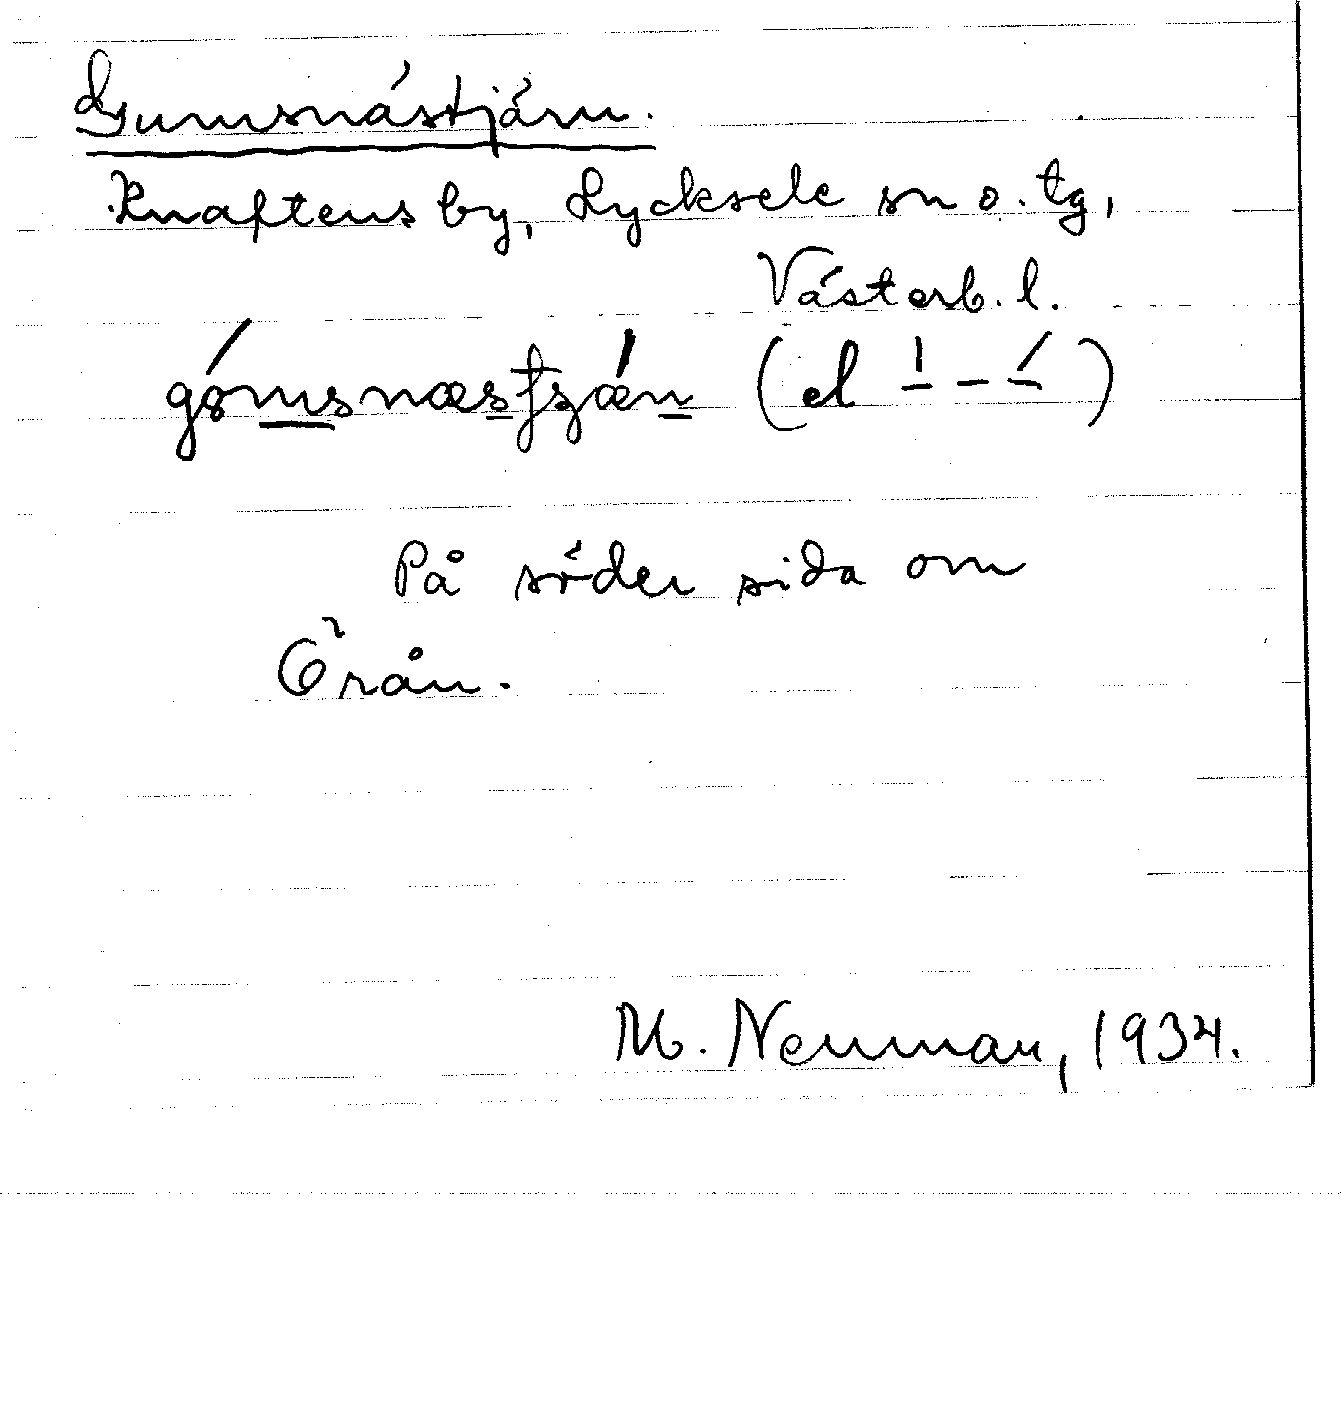 Gumsnästjärn.
Knaftens by, Lycksele sn o. tg,
Västerb. l.
(el
På söder sida om
Örån.
M. Neuman, 1934.